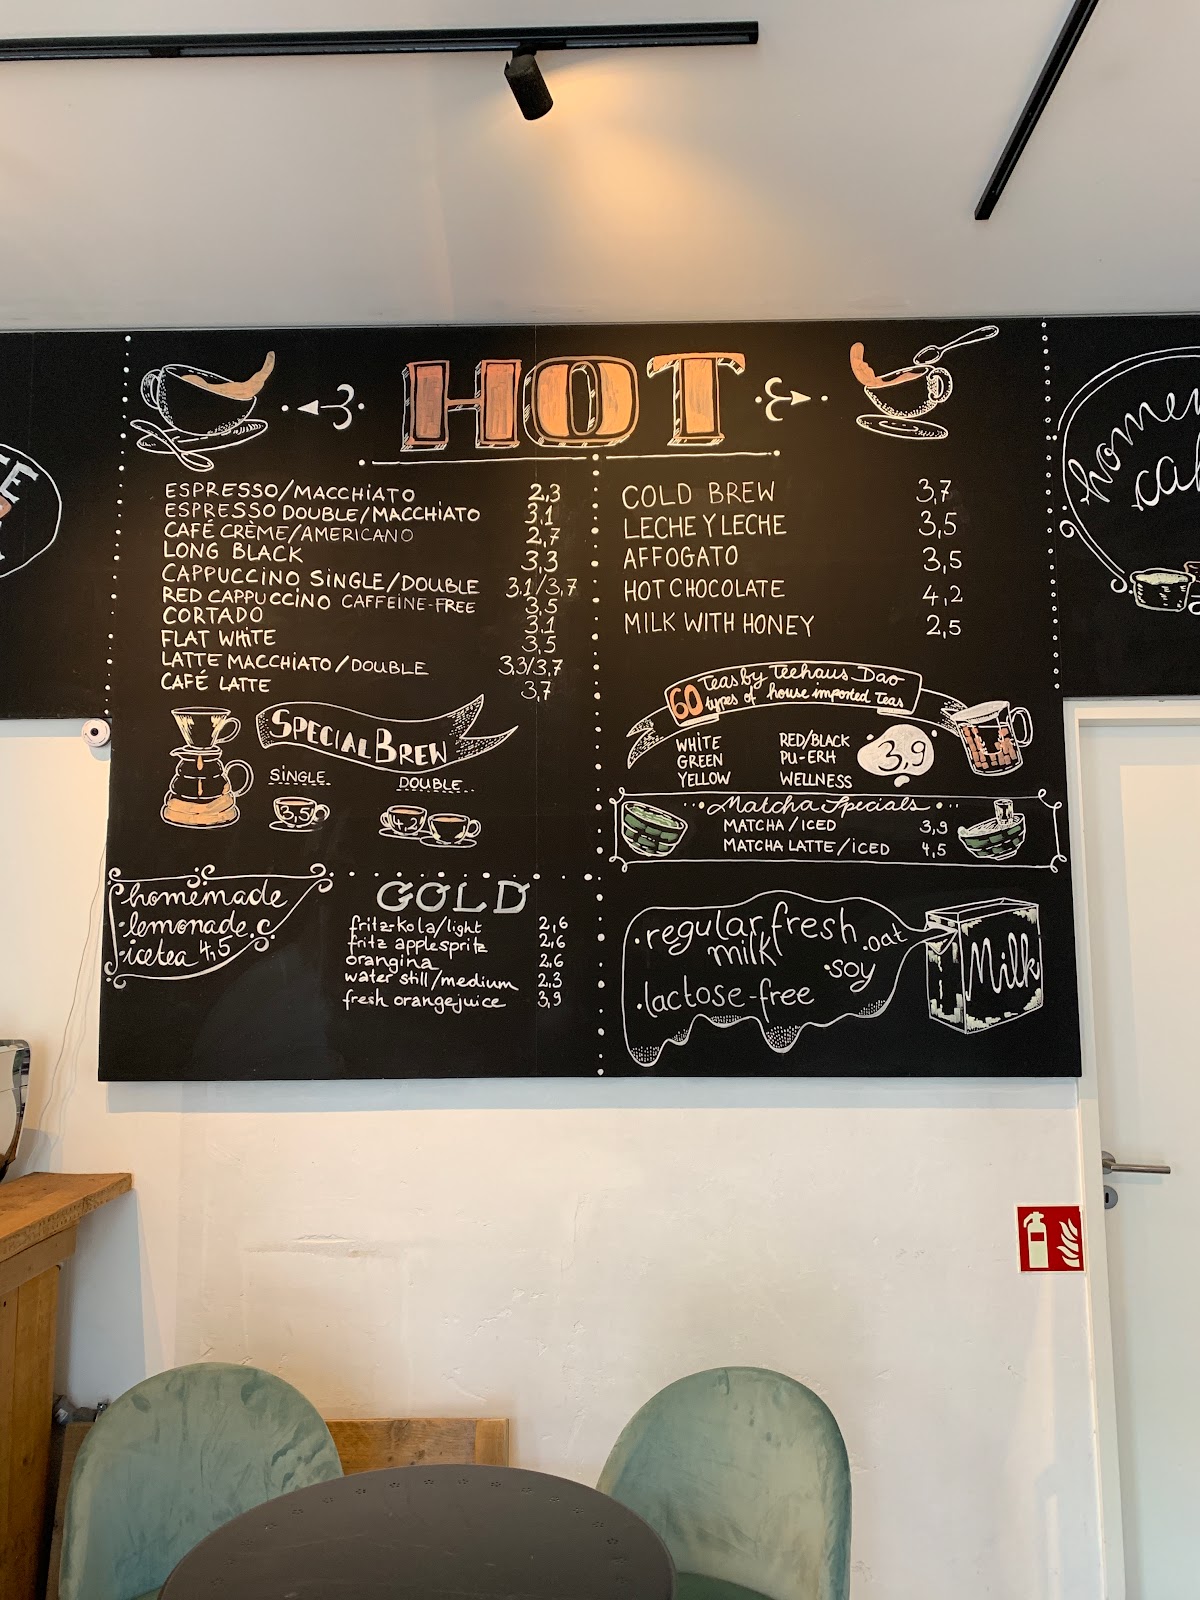 HOT
ESPRESSO/MACCHIATO 2,3
ESPRESSO DOUBLE/MACCHIATO 3,1
CAFÉ CRÈME/AMERICANO 2,7
LONG BLACK 3,3
CAPPUCCINO SINGLE/DOUBLE 3,1/3,7
RED CAPPUCCINO CAFFEINE-FREE 3,5
CORTADO 3,1
FLAT WHITE 3,5
LATTE MACCHIATO/DOUBLE 3,3/3,7
CAFÉ LATTE 3,7
SPECIAL BREW
SINGLE DOUBLE
3,5 4,2
homemade
·lemonade
·icetea 4,5
GOLD
fritz-kola/light 2,6
fritz applespritz 2,6
orangina 2,6
water still/medium 2,3
fresh orangejuice 3,9
COLD BREW 3,7
LECHE Y LECHE 3,5
AFFOGATO 3,5
HOT CHOCOLATE 4,2
MILK WITH HONEY 2,5
60 Teas by Teehaus Dao
types of house imported Teas
WHITE RED/BLACK 3,9
GREEN PU-ERH
YELLOW WELLNESS
Matcha Specials
MATCHA/ICED 3,9
MATCHA LATTE/ICED 4,5
·regular fresh
milk ·oat
·soy
·lactose-free
Milk